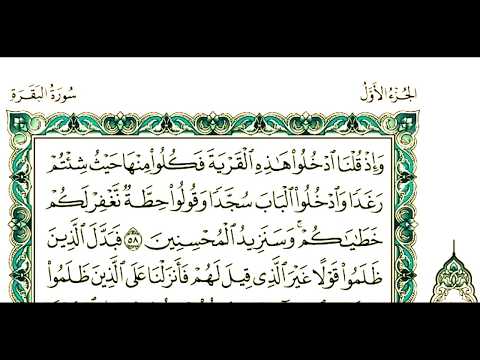 الجزء الأول
سورة البقرة
وَإِذْ قُلْنَا ٱدْخُلُوا۟ هَٰذِهِ ٱلْقَرْيَةَ فَكُلُوا۟ مِنْهَا حَيْثُ شِئْتُمْ
رَغَدًا وَٱدْخُلُوا۟ ٱلْبَابَ سُجَّدًا وَقُولُوا۟ حِطَّةٌ نَّغْفِرْ لَكُمْ
خَطَٰيَٰكُمْ ۚ وَسَنَزِيدُ ٱلْمُحْسِنِينَ ٥٨ فَبَدَّلَ ٱلَّذِينَ
ظَلَمُوا۟ قَوْلًا غَيْرَ ٱلَّذِى قِيلَ لَهُمْ فَأَنزَلْنَا عَلَى ٱلَّذِينَ ظَلَمُوا۟